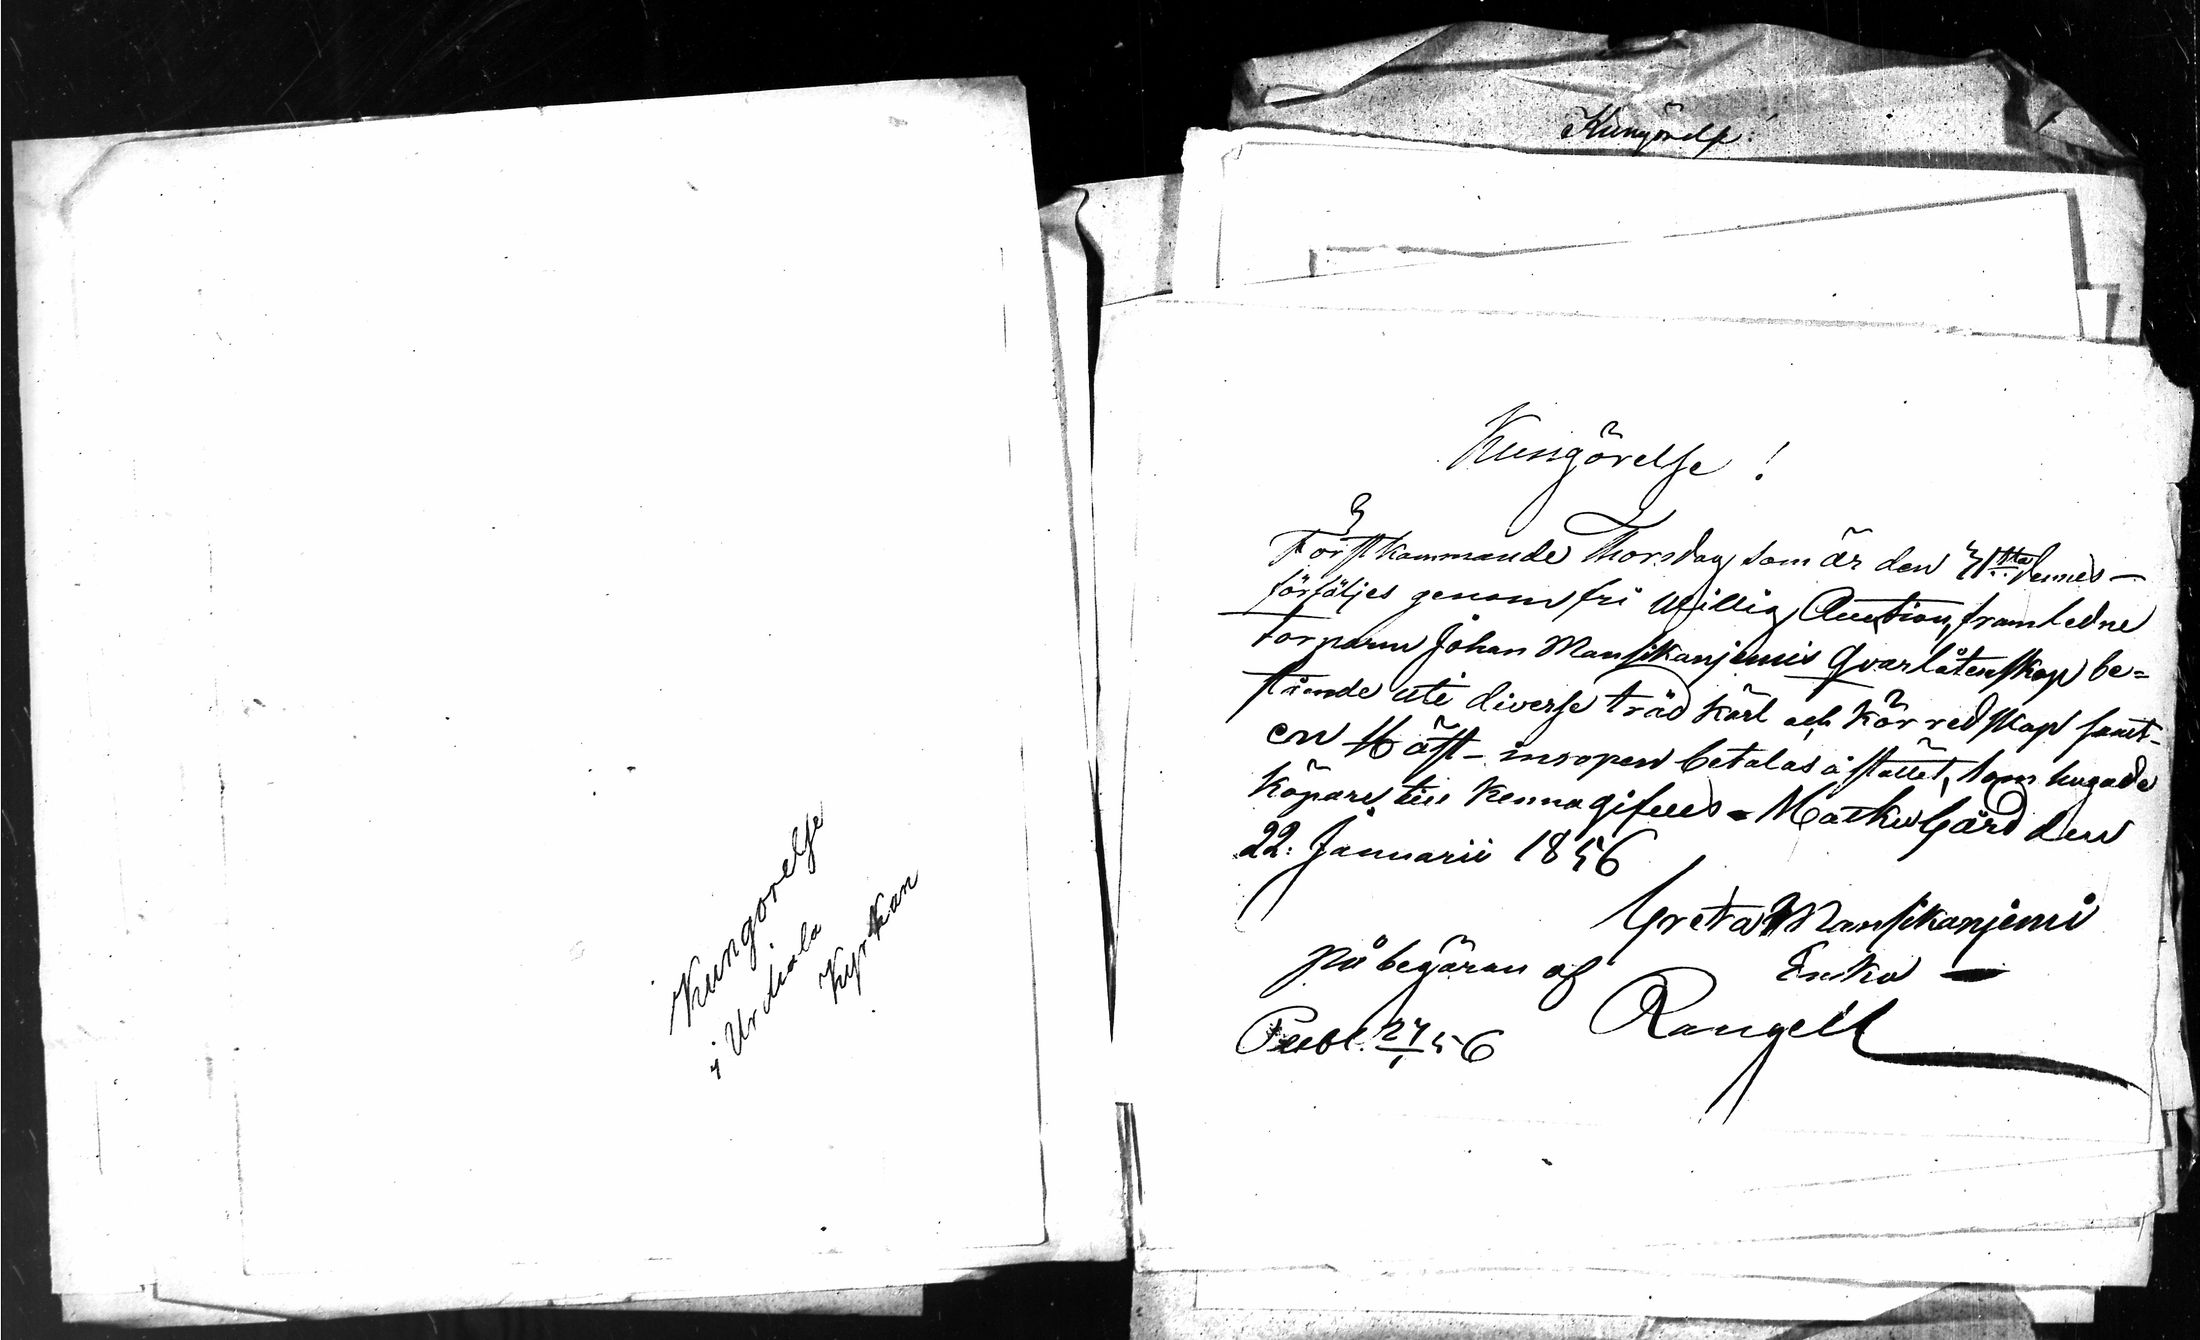 Kungörelse
i Urdiala
Kyrkan
Kungörelse
Kungörelse!
Förstkammande Thorsdag som är den 31sta dennes
försöljes genom fri willig Auction, framledne
torparen Johan Mansikanjemis Qvarlåtenskap be=
stånde uti diverse träd kärl och Kör redskap samt
en Häst - inropen betalas å stället, som hugade
köpare till Kenna gifves - Matku Gård den
22: Januarii 1856
Greta Mansikanjemi
Enka
På begäran af
Rangell
Publ. 27/1 56